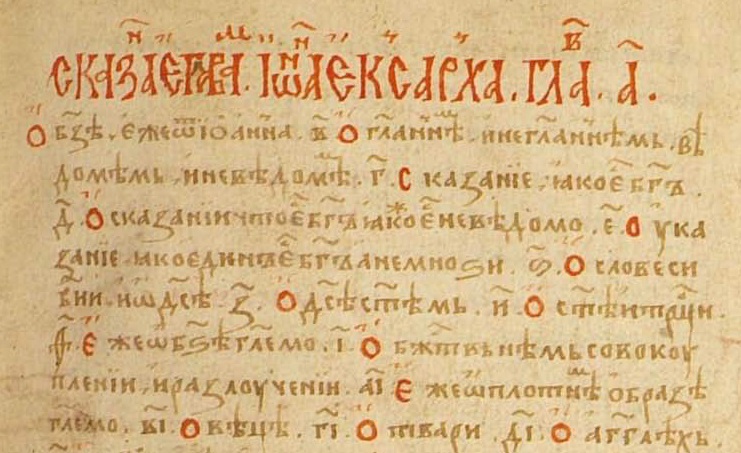 сказаїе главы. іѡан҇а еѯарха. гла. а҃.
О бз҃ѣ, ежеѿ іоанна. в҃ О гл҃аннѣ, и негл҃аннѣмь, вѣ
домѣмь, и невѣдомѣ. г҃. С казаніе, ꙗкое҃ бг҃ъ.
д҃. О сказаніи что е҃ бг҃ъ ꙗко е҃ невѣдомо. е҃. О ука
заніе ꙗко единъ е҃ бг҃ъ а немноѕи. ѕ҃. О словеси
и ѡ дс҃ѣ з҃. О дс҃ѣ ст҃ѣмь. и҃. О ст҃ѣи трц҃и.
Е же ѡ бз҃ѣ гл҃емо. і҃. О бжт҃вьнѣмь совокоу
пленіи, и разлоученіи. аі҃ Е же ѡ плотнѣ образѣ
гл҃емо. ві҃. О вѣцѣ. гі҃. О твари. ді҃. О агг҃лѣхъ.